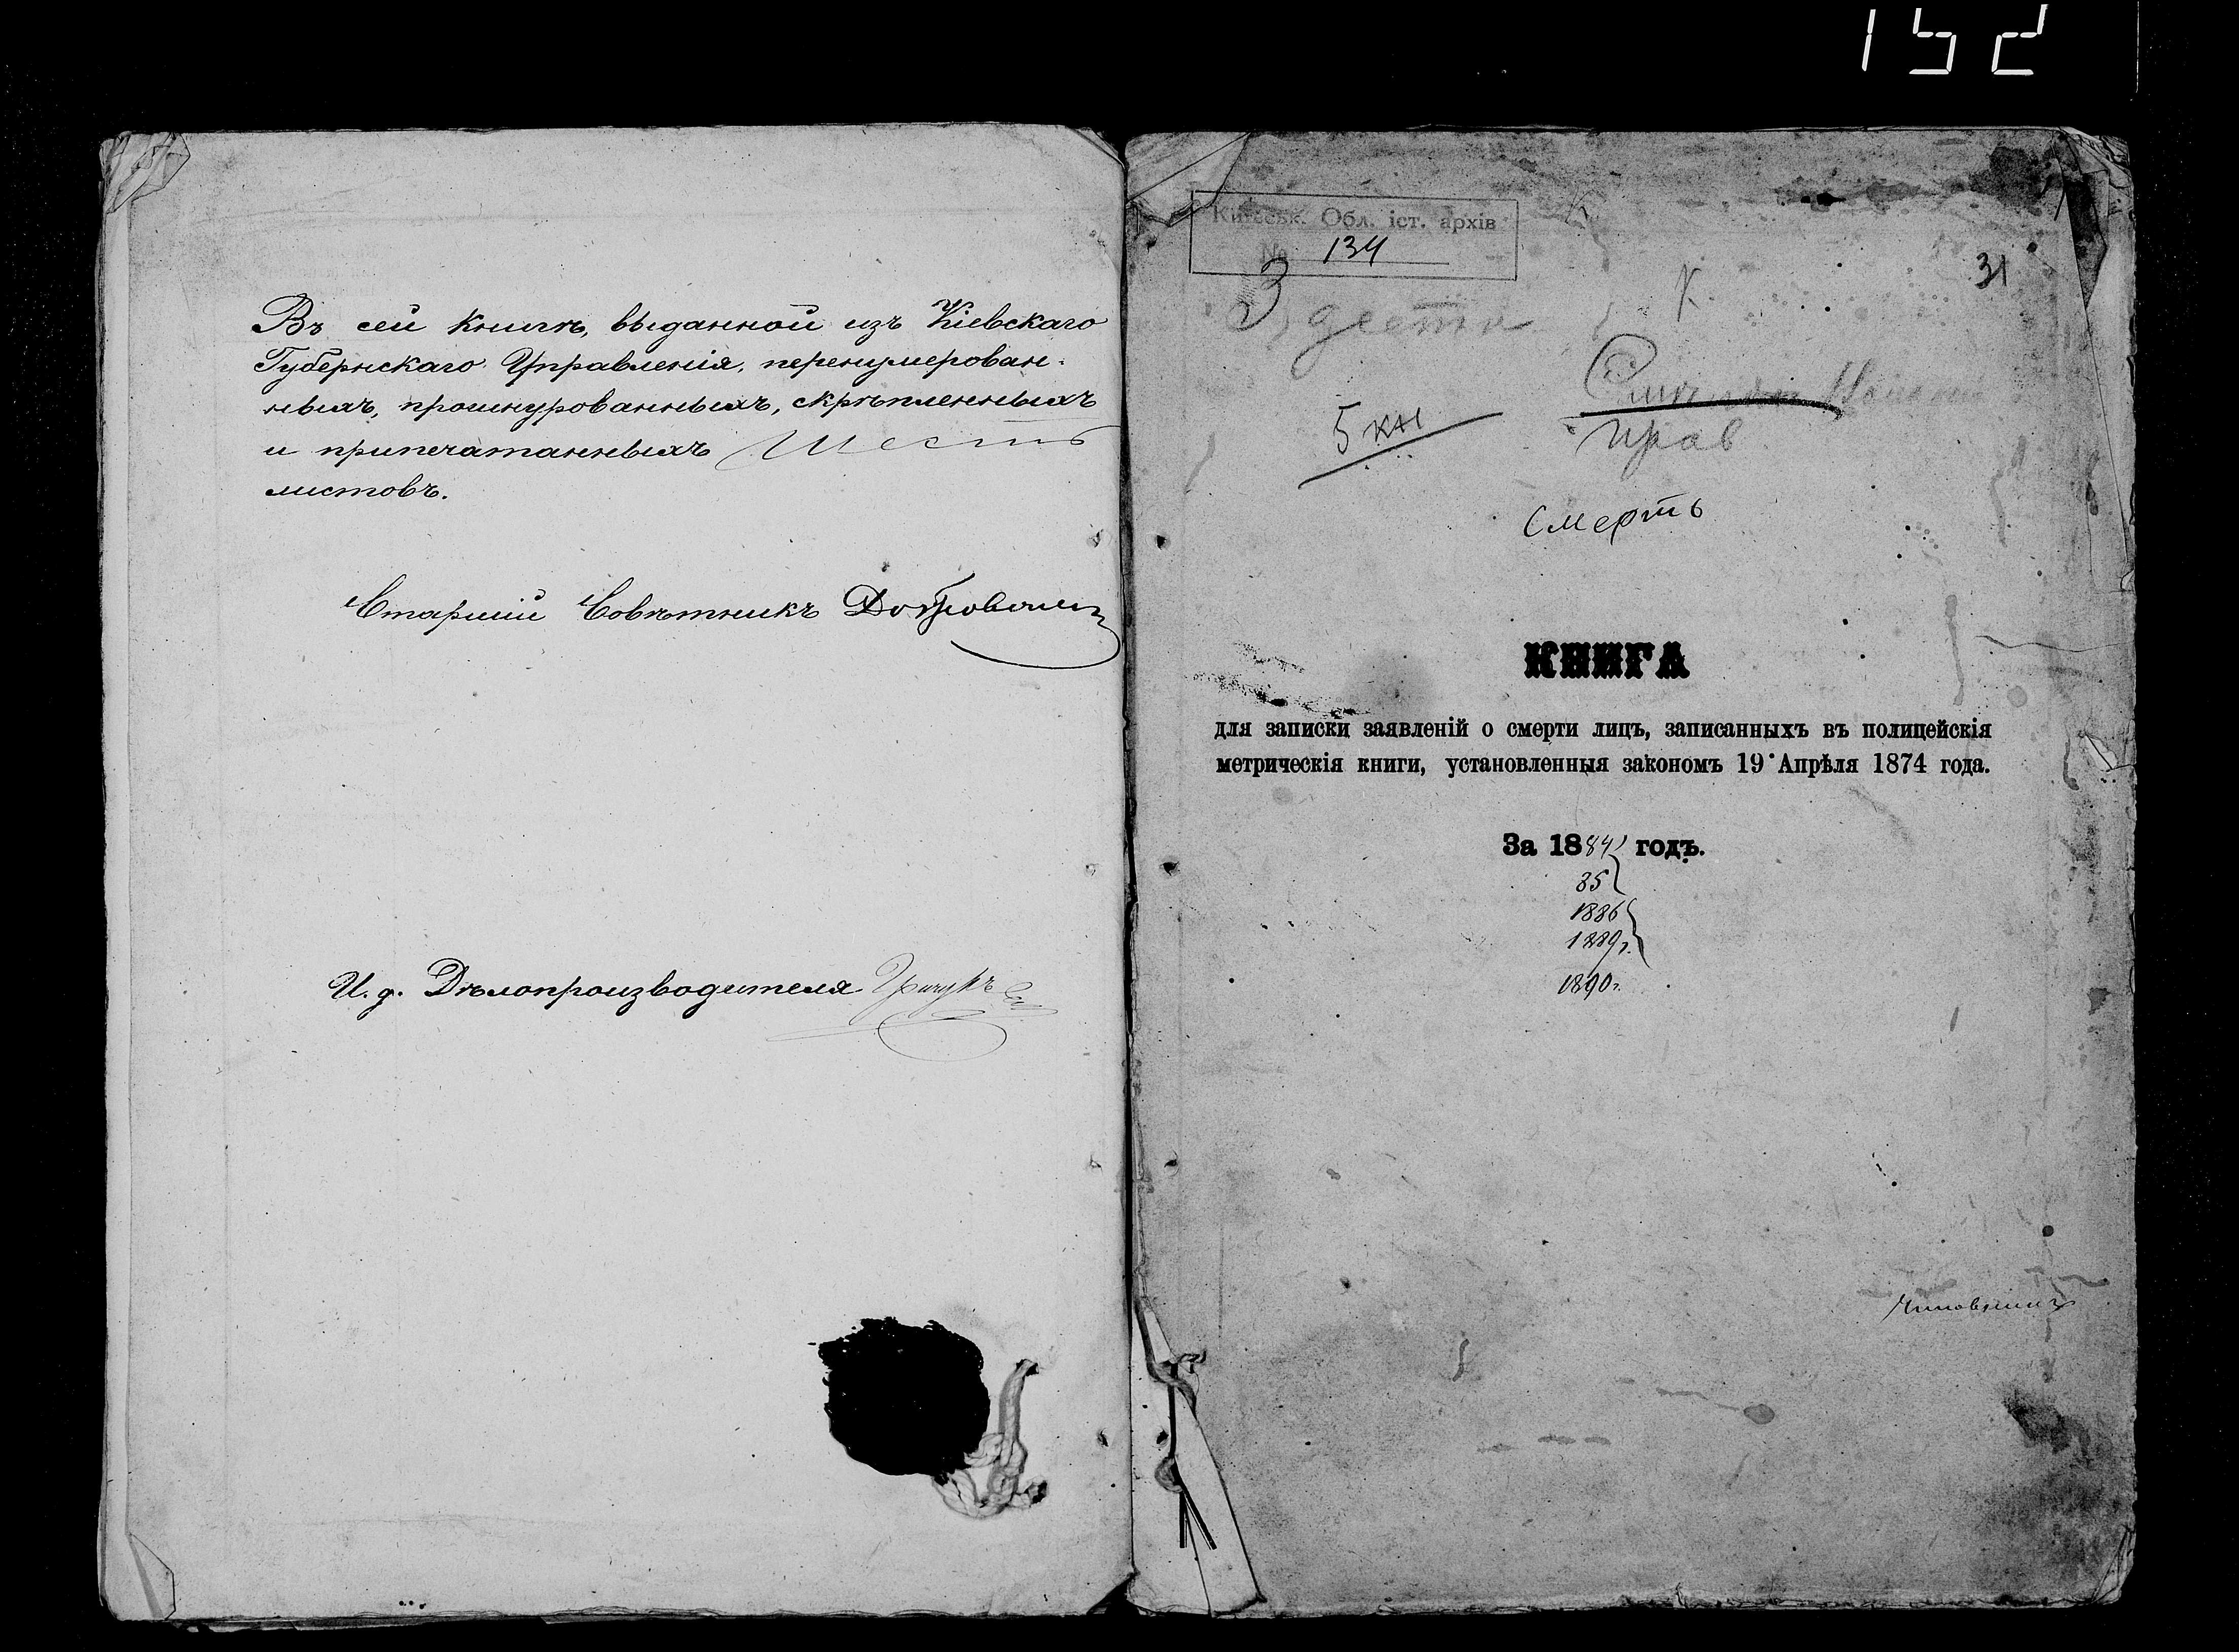 152
Въ сей книгѣ, выданной изъ Кіевскаго
Губернскаго Управленія, перенумерован-
ныхъ, прошнурованныхъ, скрѣпленныхъ
и припечатанныхъ шесть
листовъ.
Старшій Совѣтникъ
И. д. Дѣлопроизводителя
Київськ. Обл. іст. архів
№ 134
31
К
3
5 кн
смерть
КНИГА
для записки заявленій о смерти лицъ, записанныхъ въ полицейскія
метрическія книги, установленныя закономъ 19 Апрѣля 1874 года.
За 1884 годъ.
85
1886
1889г.
1890г.